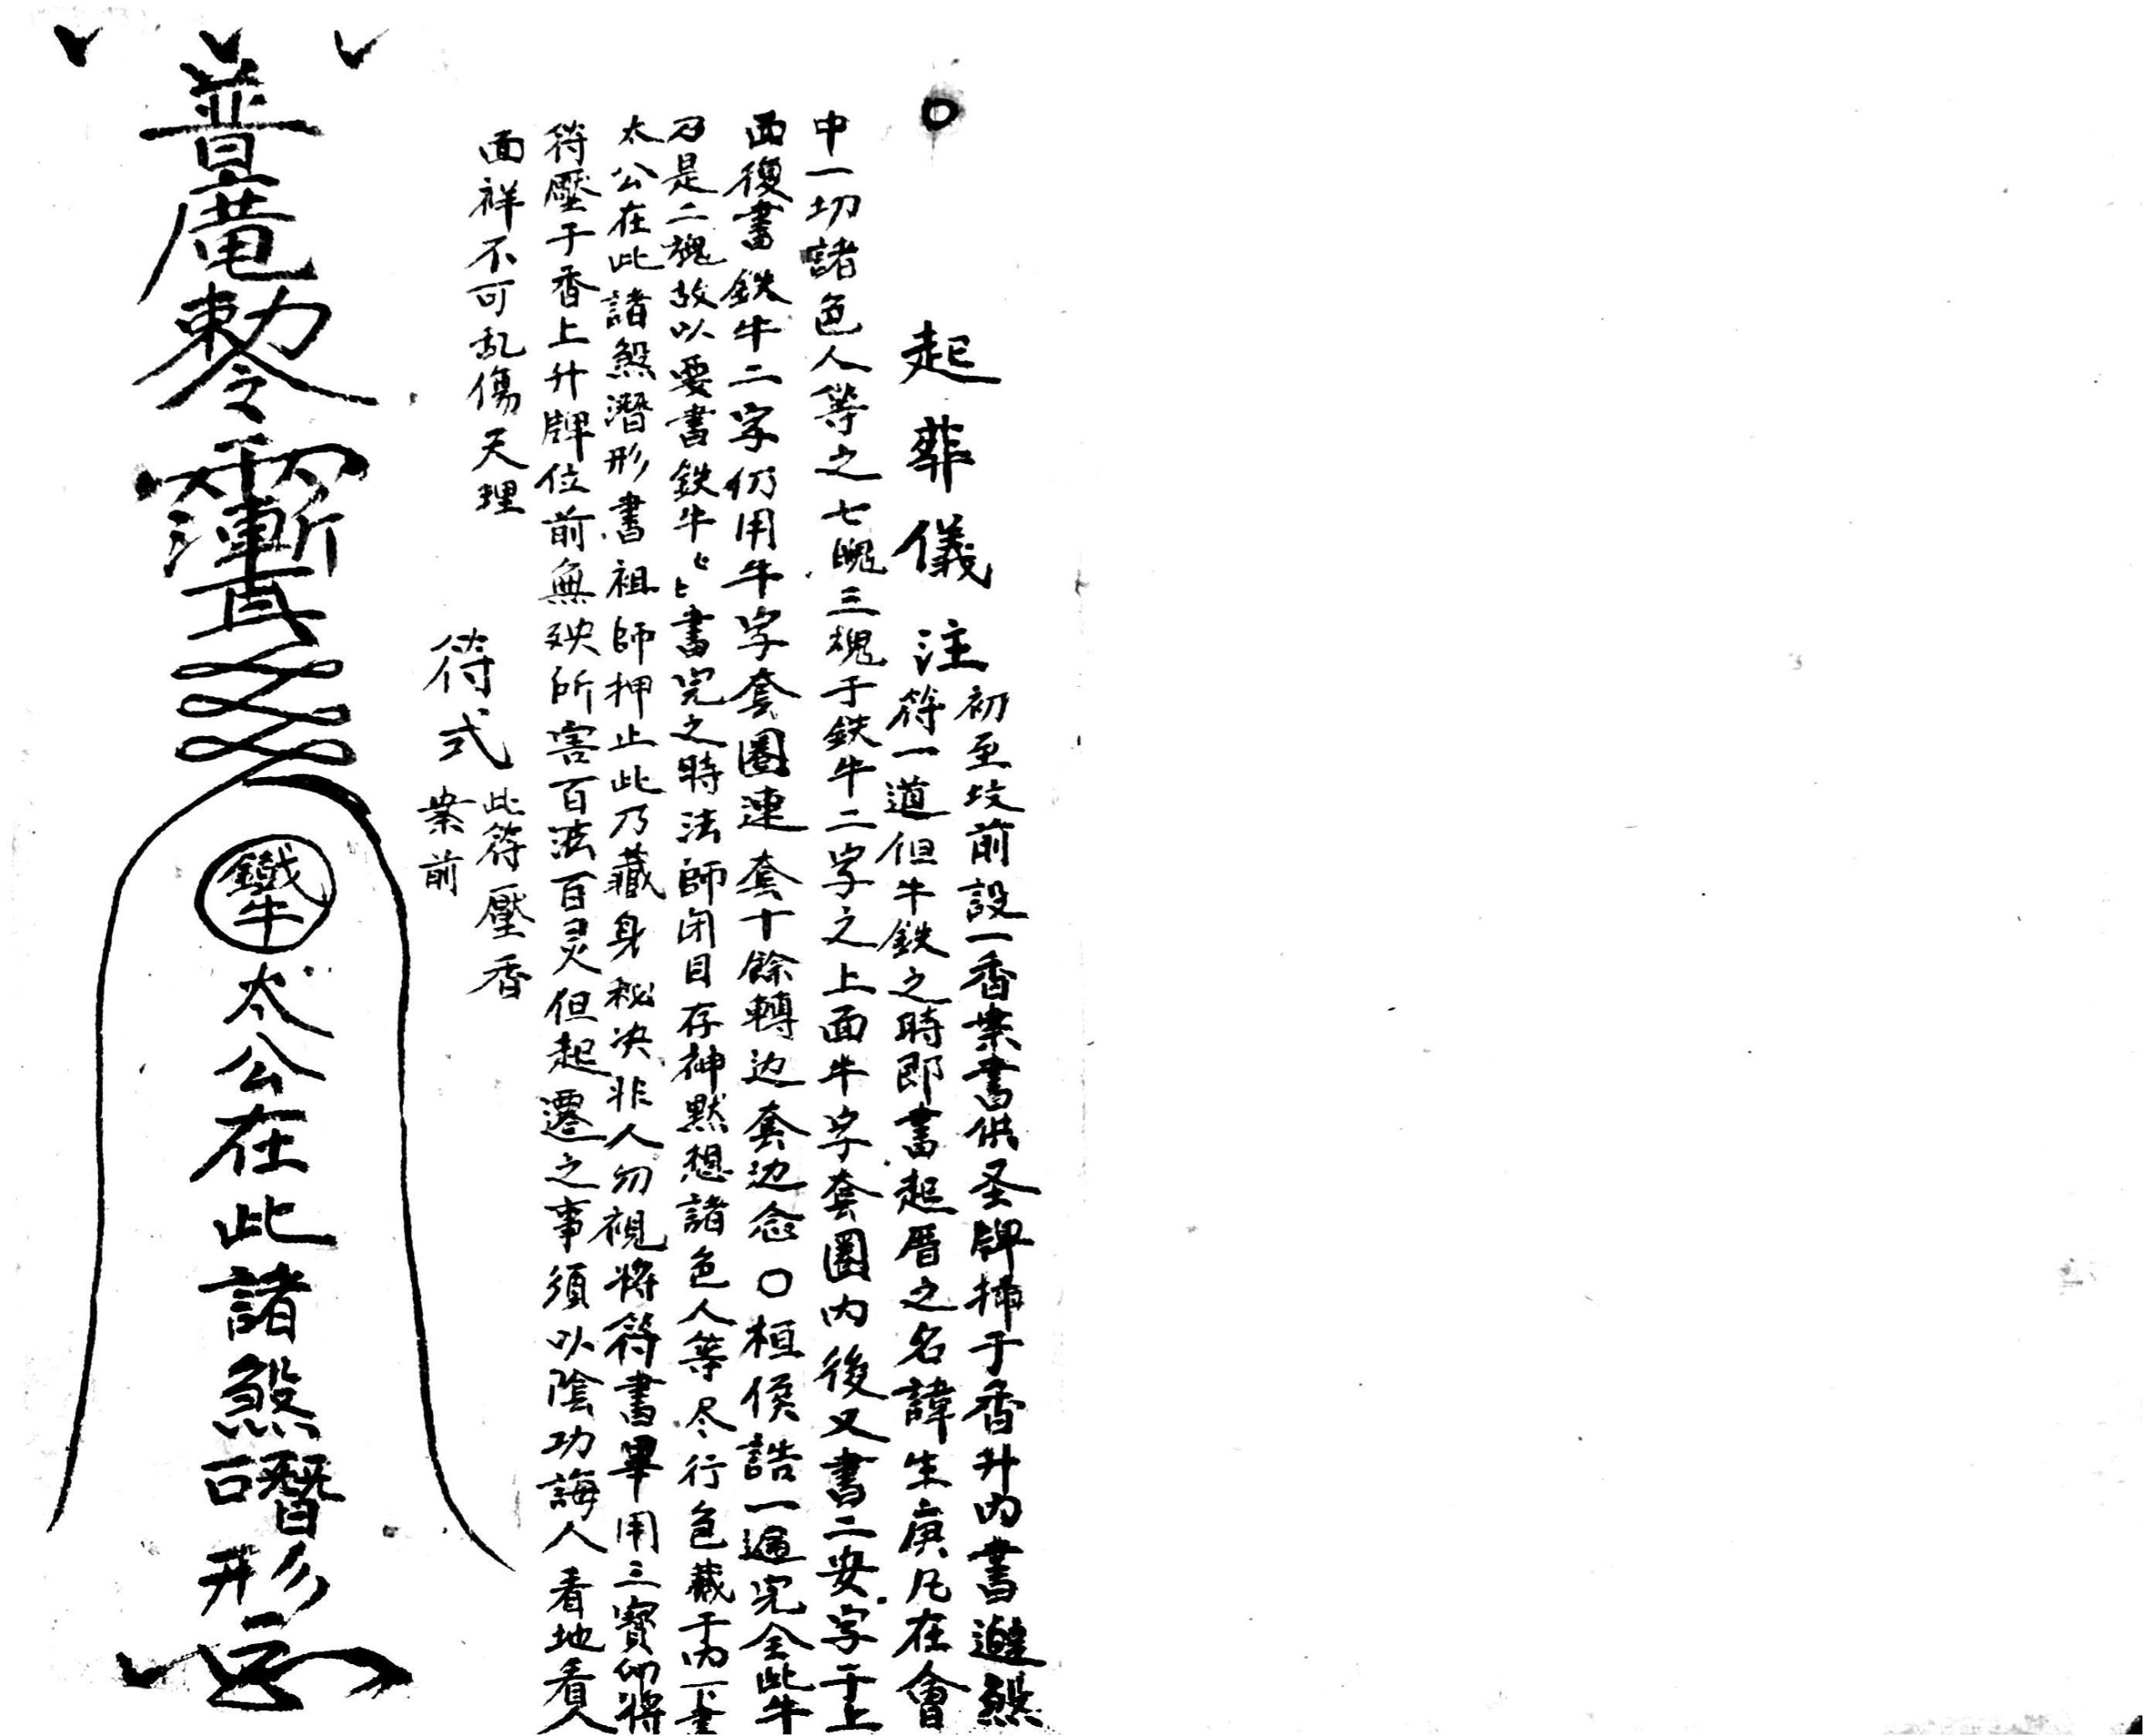 ○ 起葬儀 注 初至坟前設一香業書供圣牌揷于香升内書避煞
符一道但牛鉄之時即書起厝之名諱生庚凡在會
中一切諸色人等之七魄三魂于鉄牛二字之上面牛字套圈内後又書二安字于上
面復書鉄牛二字仍用牛字套圈連套十餘轉边套边念○桓侯誥一遍完全此牛
乃是二魂故以要書鉄牛匕匕書完之時法師闭目存神黙想諸色人等尽行包藏于内一書
太公在此諸煞潛形書祖師押止此乃藏身秘决非人勿視將符書畢用三寳印將
符壓于香上升牌位前無殃所害百法百灵但起遷之事須以陰功誨人看地看人
面祥不可乱傷天理
符式 此符壓香
業前
普庵勅令
真
鐵牛
太公在此諸煞潛形